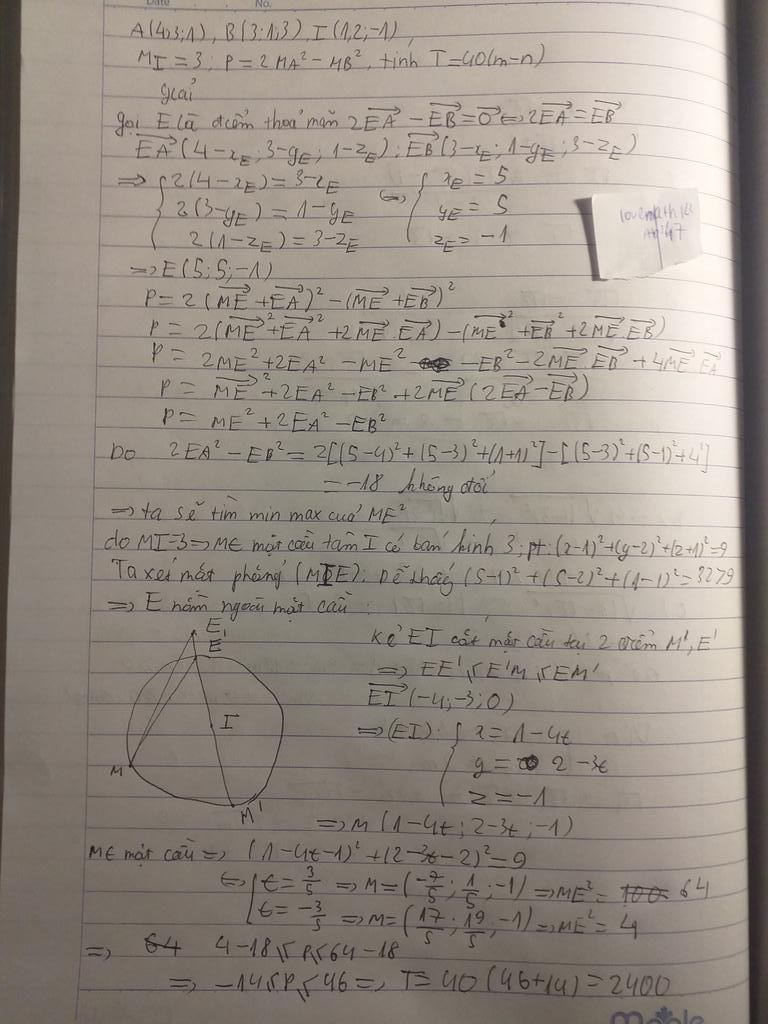 Date No.
A(4;3;1), B(3;1;3), I(1;2;-1),
MI = 3; P = 2MA² - MB², tính T = 40(m-n)
Giải
Gọi E là điểm thoả mãn 2EA - EB = 0 ⇔ 2EA = EB
EA(4-x_E; 3-y_E; 1-z_E); EB(3-x_E; 1-y_E; 3-z_E)
⇒ { 2(4-x_E) = 3-x_E ⇔ { x_E = 5
2(3-y_E) = 1-y_E y_E = 5
2(1-z_E) = 3-z_E z_E = -1
⇒ E(5; 5; -1)
P = 2(ME + EA)² - (ME + EB)²
P = 2(ME² + EA² + 2ME.EA) - (ME² + EB² + 2ME.EB)
P = 2ME² + 2EA² - ME² - EB² - 2ME.EB + 4ME.EA
P = ME² + 2EA² - EB² + 2ME(2EA - EB)
P = ME² + 2EA² - EB²
Do 2EA² - EB² = 2[(5-4)² + (5-3)² + (1+1)²] - [(5-3)² + (5-1)² + 4²]
= -18 không đổi
⇒ ta sẽ tìm min max của ME²
do MI=3 ⇒ M∈ mặt cầu tâm I có bán kính 3; pt: (x-1)² + (y-2)² + (z+1)² = 9
Ta xét mặt phẳng (MIE): Dễ thấy (5-1)² + (5-2)² + (1-1)² = 32>9
⇒ E nằm ngoài mặt cầu:
E
E'
I
M
M'
Kẻ EI cắt mặt cầu tại 2 điểm M', E'
⇒ EE' ≤ E'M ≤ EM'
EI(-4; -3; 0)
⇒ (EI): { x = 1-4t
y = 2-3t
z = -1
⇒ M(1-4t; 2-3t; -1)
M∈ mặt cầu ⇒ (1-4t-1)² + (2-3t-2)² = 9
⇔ { t = 3/5 ⇒ M = (-7/5; 1/5; -1) ⇒ ME² = 64
t = -3/5 ⇒ M = (17/5; 19/5; -1) ⇒ ME² = 4
⇒ 4-18 ≤ P ≤ 64-18
⇒ -14 ≤ P ≤ 46 ⇒ T = 40(46+14) = 2400